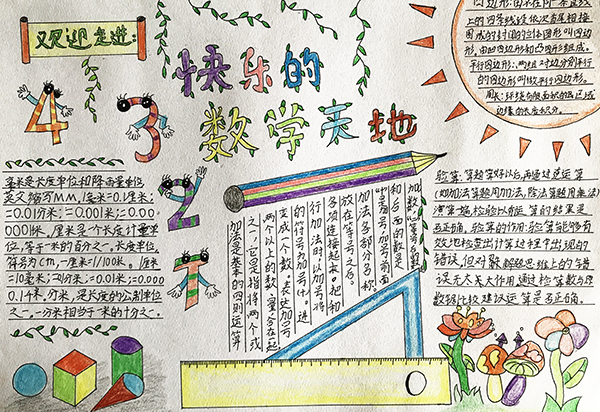 欢迎走进:
快乐的
数学天地
4
3
2
1
四边形:由不在同一条直线
上的四条线段依次首尾相接
围成的封闭的立体图形叫四边
形,由凹四边形和凸四形组成。
平行四边形:两组对边分别平行
的四边形叫做平行四边形。
周长:环绕有限面积的区域
边缘的长度积分。
毫米是长度单位和降雨量单位,
英文缩写MM,1毫米=0.1厘米;
=0.01分米;=0.001米;=0.00
0001千米. 厘米是个长度计量单
位,等于一米的百分之一,长度单位,
符号为cm,一厘米=1/100米。1厘米
=10毫米;=0.1分米;=0.01米;=0.000
01千米,分米,是长度的公制单位
之一,一分米相当于一米的十分之一.
加法是基本的四则运算
之一,它是指将两个或
两个以上的数、量合在起
变成一个数,表达加号
的符号为加号"+". 进
行加法时以加号将
各项连接起来。把和
放在等号之后。
加法各部分名称:
"+"是加号,加号前面
和后面的数是
加数,
验算:算题算好以后,再通过逆运算
(如加法算题用加法,除法算题用乘法)
演算一遍,检验以前运算的结果是
否正确,验算的作用:验算能够有
效地检查出计算过程中出现的
错误,但对解题思维上的错
误无太大大作用通过检算数与原
数据比较建议运算是否正确.